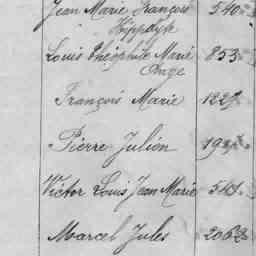 Jean Marie François 540
Hippolyte
Louis Théophile Marie 833
Ange
François Marie
Pierre Julien
Victor Louis Jean Marie
Marcel Jules 2062